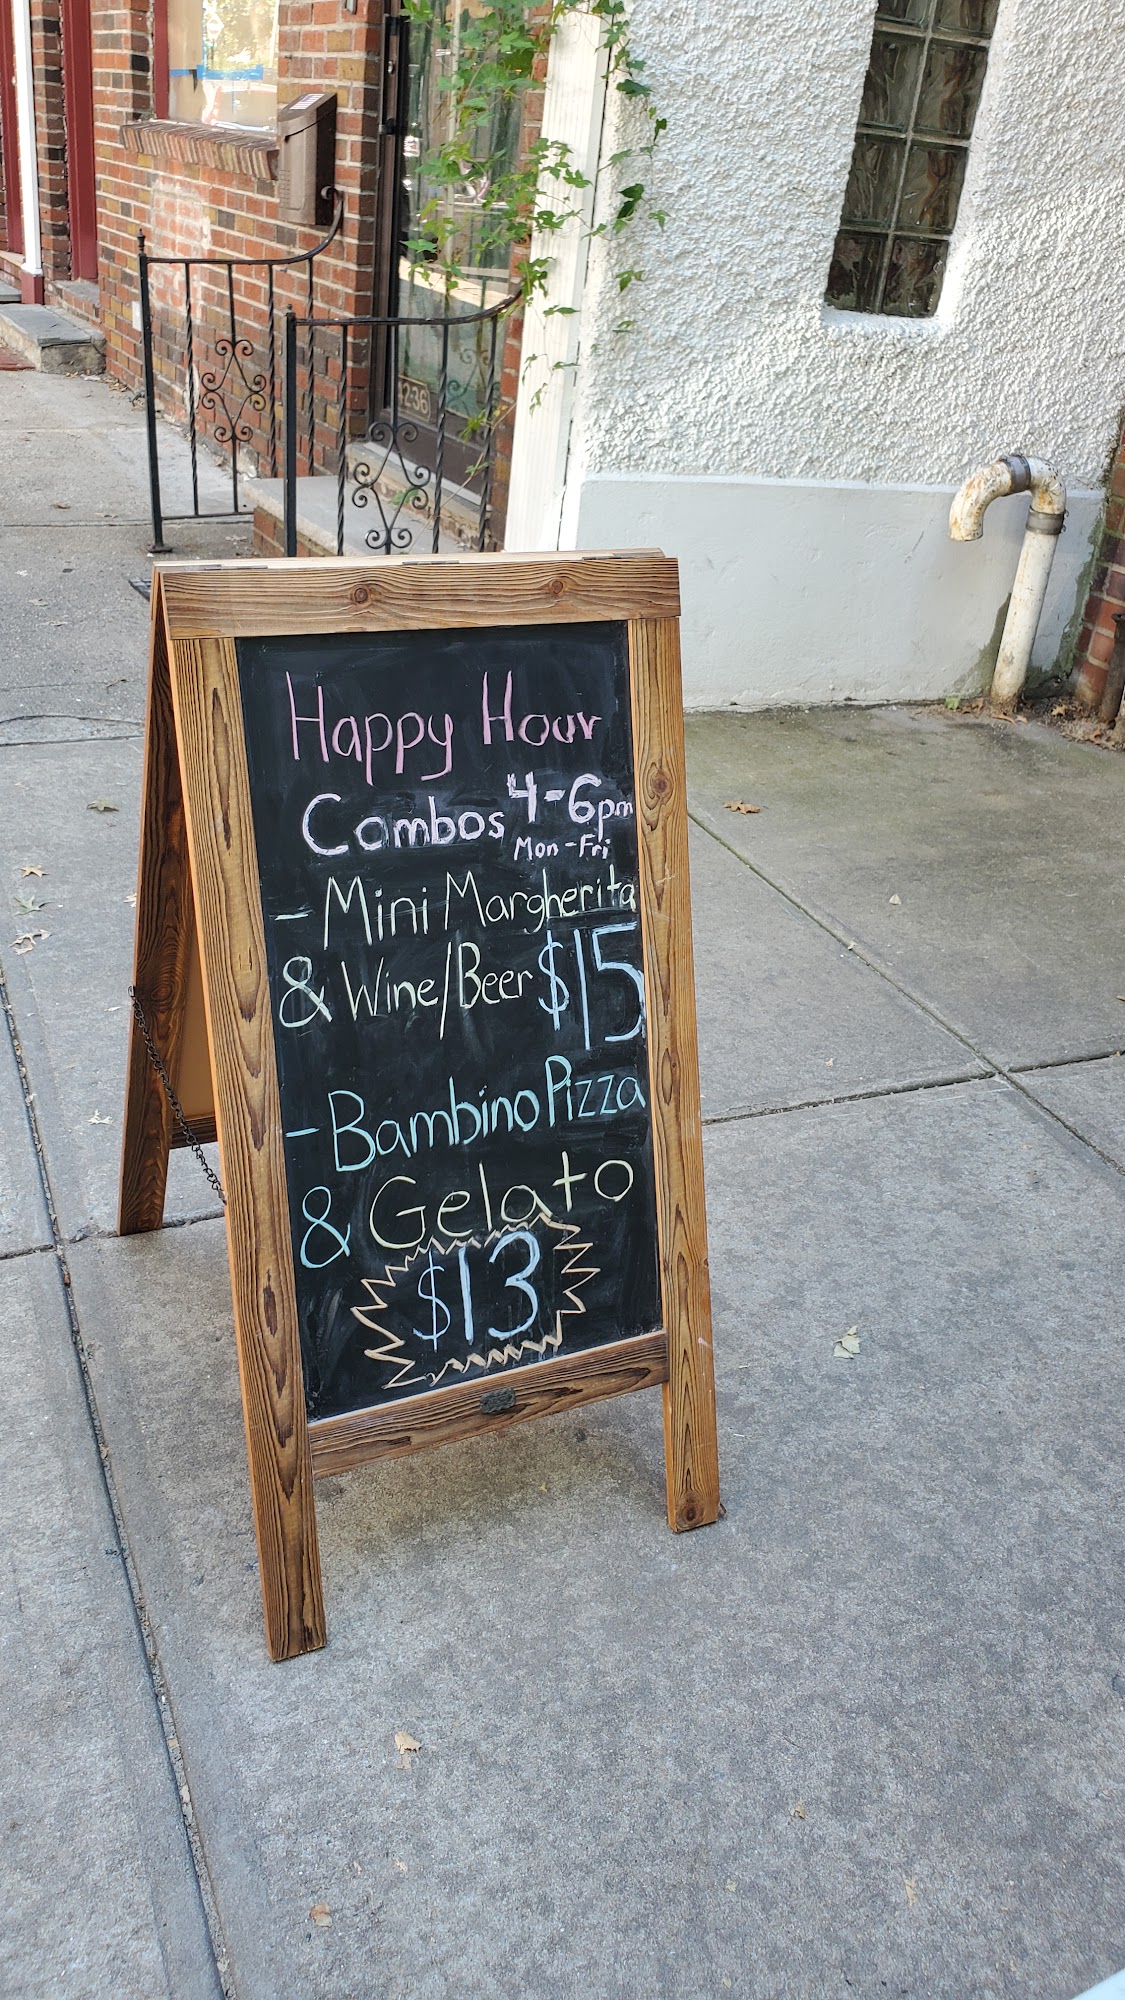 Happy Hour
Combos 4-6pm
Mon-Fri
- Mini Margherita
& Wine/Beer $15
- Bambino Pizza
& Gelato
$13